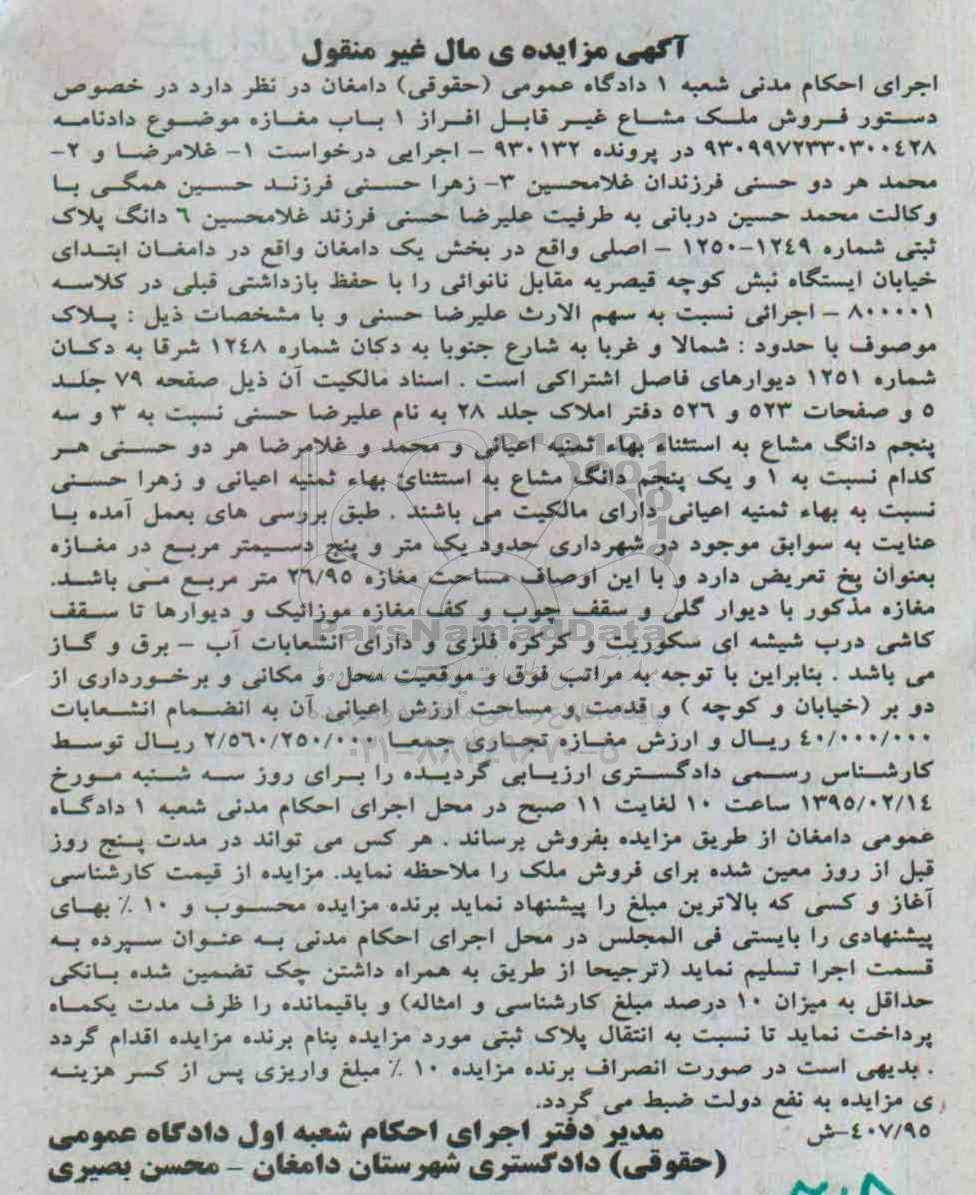 آگهی مزایده ی مال غیر منقول
اجرای احکام مدنی شعبه ۱ دادگاه عمومی (حقوقی) دامغان در نظر دارد در خصوص
دستور فروش ملک مشاع غیر قابل افراز ۱ باب مغازه موضوع دادنامه
۹۳۰۹۹۷۲۳۳۰۳۰۰۴۲۸ در پرونده ۹۳۰۱۳۲ – اجرایی درخواست ۱- غلامرضا و ۲-
محمد هر دو حسنی فرزندان غلامحسین ۳- زهرا حسنی فرزند حسین همگی با
وکالت محمد حسین دربانی به طرفیت علیرضا حسنی فرزند غلامحسین ۶ دانگ پلاک
ثبتی شماره ۱۲۴۹-۱۲۵۰ – اصلی واقع در بخش یک دامغان واقع در دامغان ابتدای
خیابان ایستگاه نبش کوچه قیصریه مقابل نانوائی را با حفظ بازداشتی قبلی در کلاسه
۸۰۰۰۰۱ – اجرائی نسبت به سهم الارث علیرضا حسنی و با مشخصات ذیل : پلاک
موصوف با حدود : شمالا و غربا به شارع جنوبا به دکان شماره ۱۲۴۸ شرقا به دکان
شماره ۱۲۵۱ دیوارهای فاصل اشتراکی است . اسناد مالکیت آن ذیل صفحه ۷۹ جلد
۵ و صفحات ۵۲۳ و ۵۲۶ دفتر املاک جلد ۲۸ به نام علیرضا حسنی نسبت به ۳ و سه
پنجم دانگ مشاع به استثناء بهاء ثمنیه اعیانی و محمد و غلامرضا هر دو حسنی هر
کدام نسبت به ۱ و یک پنجم دانگ مشاع به استثنائ بهاء ثمنیه اعیانی و زهرا حسنی
نسبت به بهاء ثمنیه اعیانی دارای مالکیت می باشند . طبق بررسی های بعمل آمده با
عنایت به سوابق موجود در شهرداری حدود یک متر و پنج دسیمتر مربع در مغازه
بعنوان پخ تعریض دارد و با این اوصاف مساحت مغازه ۲۶/۹۵ متر مربع می باشد.
مغازه مذکور با دیوار گلی و سقف چوب و کف مغازه موزائیک و دیوارها تا سقف
کاشی درب شیشه ای سکوریت و کرکره فلزی و دارای انشعابات آب – برق و گاز
می باشد . بنابراین با توجه به مراتب فوق و موقعیت محل و مکانی و برخورداری از
دو بر (خیابان و کوچه ) و قدمت و مساحت ارزش اعیانی آن به انضمام انشعابات
۴۰/۰۰۰/۰۰۰ ریال و ارزش مغازه تجاری جمعا ۲/۵۶۰/۲۵۰/۰۰۰ ریال توسط
کارشناس رسمی دادگستری ارزیابی گردیده را برای روز سه شنبه مورخ
۱۳۹۵/۰۲/۱۴ ساعت ۱۰ لغایت ۱۱ صبح در محل اجرای احکام مدنی شعبه ۱ دادگاه
عمومی دامغان از طریق مزایده بفروش برساند . هر کس می تواند در مدت پنج روز
قبل از روز معین شده برای فروش ملک را ملاحظه نماید. مزایده از قیمت کارشناسی
آغاز و کسی که بالاترین مبلغ را پیشنهاد نماید برنده مزایده محسوب و ۱۰ ٪ بهای
پیشنهادی را بایستی فی المجلس در محل اجرای احکام مدنی به عنوان سپرده به
قسمت اجرا تسلیم نماید (ترجیحا از طریق به همراه داشتن چک تضمین شده بانکی
حداقل به میزان ۱۰ درصد مبلغ کارشناسی و امثاله) و باقیمانده را ظرف مدت یکماه
پرداخت نماید تا نسبت به انتقال پلاک ثبتی مورد مزایده بنام برنده مزایده اقدام گردد
. بدیهی است در صورت انصراف برنده مزایده ۱۰ ٪ مبلغ واریزی پس از کسر هزینه
ی مزایده به نفع دولت ضبط می گردد.
۴۰۷/۹۵-ش
مدیر دفتر اجرای احکام شعبه اول دادگاه عمومی
(حقوقی) دادگستری شهرستان دامغان – محسن بصیری
ParsNamadData